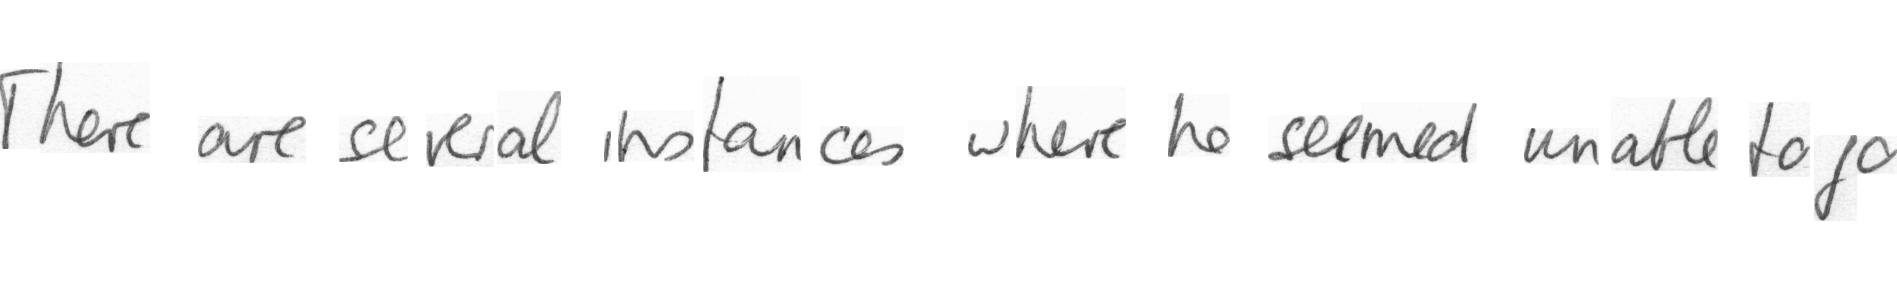 There are several instances where he seemed unable to go